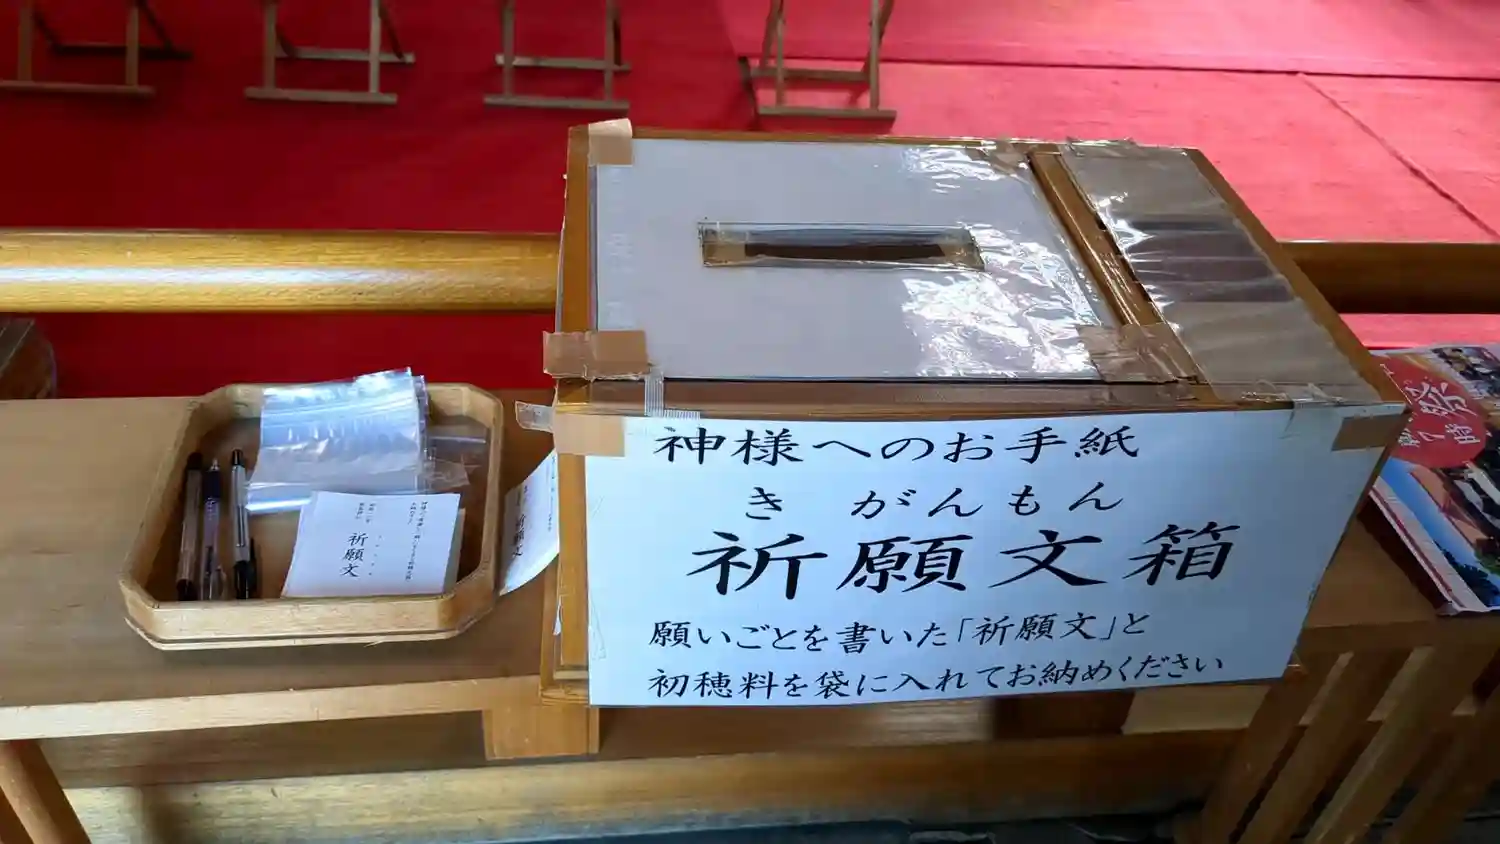 神様へのお手紙
きがんもん
祈願文箱
願いごとを書いた「祈願文」と
初穂料を袋に入れてお納めください
祈願文
祈願文
祭
7時